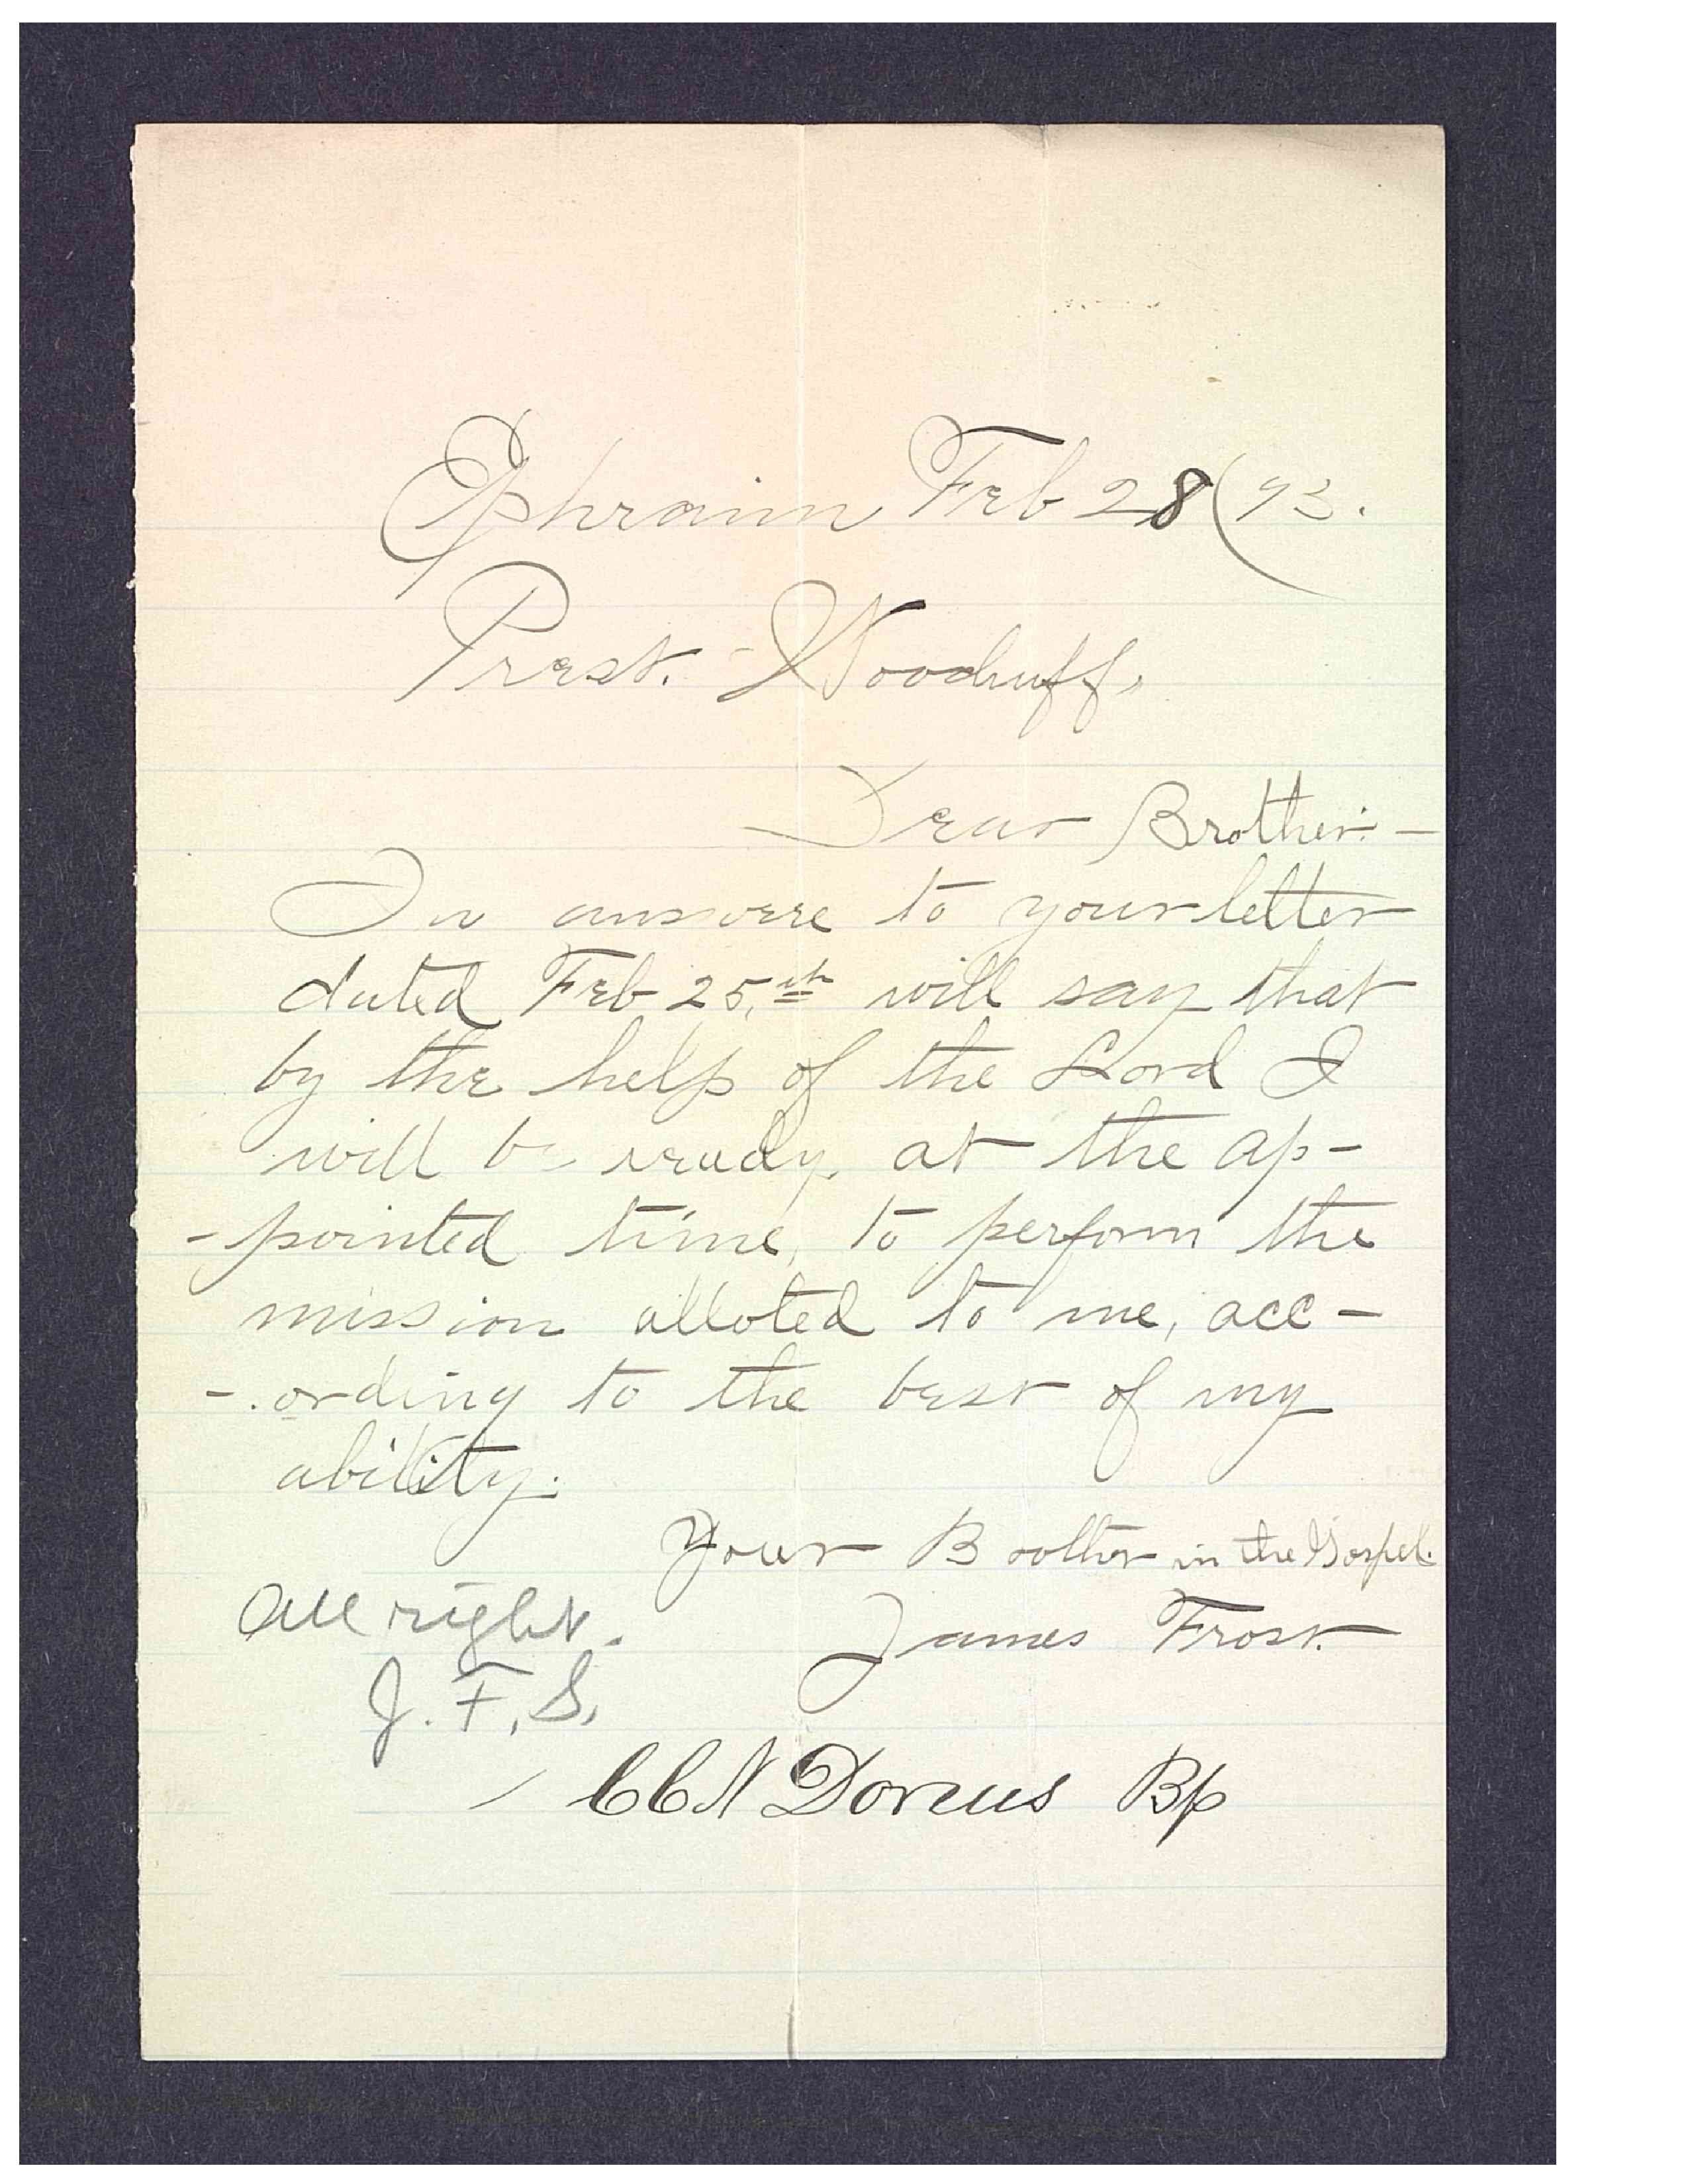 Ephraim Feb 28 (93.
Prest. Woodruff,
Dear Brother:-
In answere to your letter
dated Feb 25,th will say that
by the help of the Lord I
will be ready, at the ap-
-pointed time, to perform the
mission alloted to me, acc-
-.ording to the best of my
ability.
Your Broother in the Gospel.
James Frost.
All right.
J. F. S.
C C N Dorius Bp